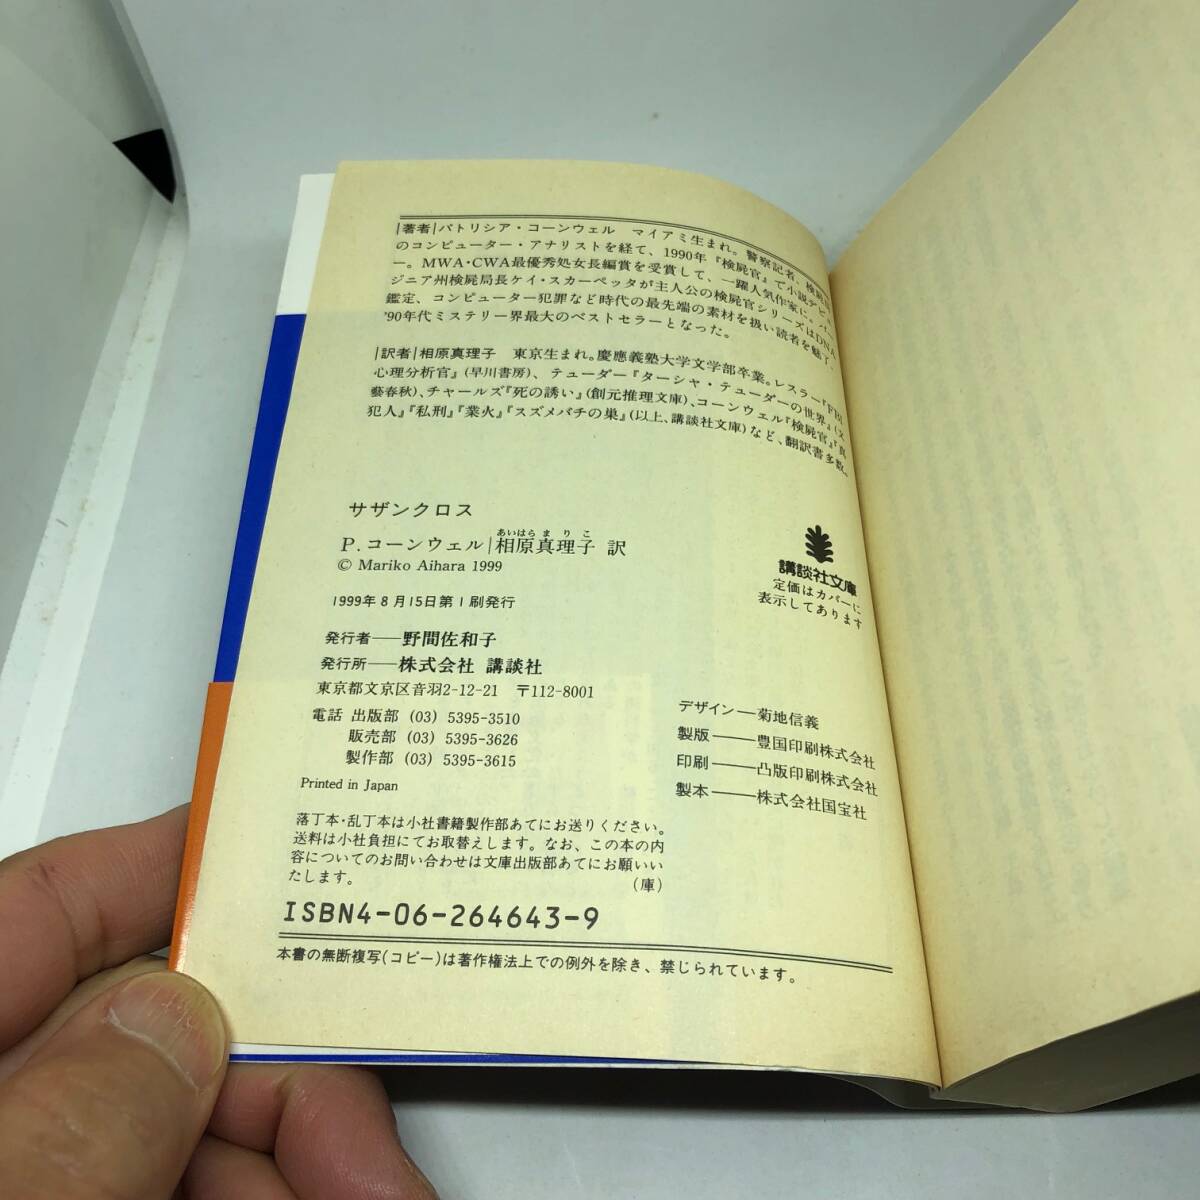 |著者|パトリシア・コーンウェル マイアミ生まれ。警察記者、検屍局
のコンピューター・アナリストを経て、1990年『検屍官』で小説デビュ
ー。MWA・CWA最優秀処女長編賞を受賞して、一躍人気作家に。バー
ジニア州検屍局長ケイ・スカーペッタが主人公の検屍官シリーズはDNA
鑑定、コンピューター犯罪など時代の最先端の素材を扱い読者を魅了、
'90年代ミステリー界最大のベストセラーとなった。
|訳者|相原真理子 東京生まれ。慶應義塾大学文学部卒業。レスラー『FBI
心理分析官』(早川書房)、テューダー『ターシャ・テューダーの世界』(文
藝春秋)、チャールズ『死の誘い』(創元推理文庫)、コーンウェル『検屍官』『真
犯人』『私刑』『業火』『スズメバチの巣』(以上、講談社文庫)など、翻訳書多数。
サザンクロス
あいはら まりこ
P.コーンウェル|相原真理子 訳
© Mariko Aihara 1999
講談社文庫
定価はカバーに
表示してあります
1999年8月15日第1刷発行
発行者――野間佐和子
発行所――株式会社 講談社
東京都文京区音羽2-12-21 〒112-8001
電話 出版部 (03) 5395-3510
販売部 (03) 5395-3626
製作部 (03) 5395-3615
Printed in Japan
デザイン―菊地信義
製版――豊国印刷株式会社
印刷――凸版印刷株式会社
製本――株式会社国宝社
落丁本・乱丁本は小社書籍製作部あてにお送りください。
送料は小社負担にてお取替えします。なお、この本の内
容についてのお問い合わせは文庫出版部あてにお願いい
たします。 (庫)
ISBN4-06-264643-9
本書の無断複写(コピー)は著作権法上での例外を除き、禁じられています。